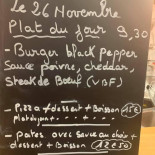 Le 26 Novembre
Plat du jour 9,30
- Burger black pepper
Sauce poivre, cheddar,
steak de Boeuf (VBF)
- Pizza + dessert + Boisson 15€
Plat du jour + - - + - -
- pates avec sauce au choix +
dessert + Boisson 12€50